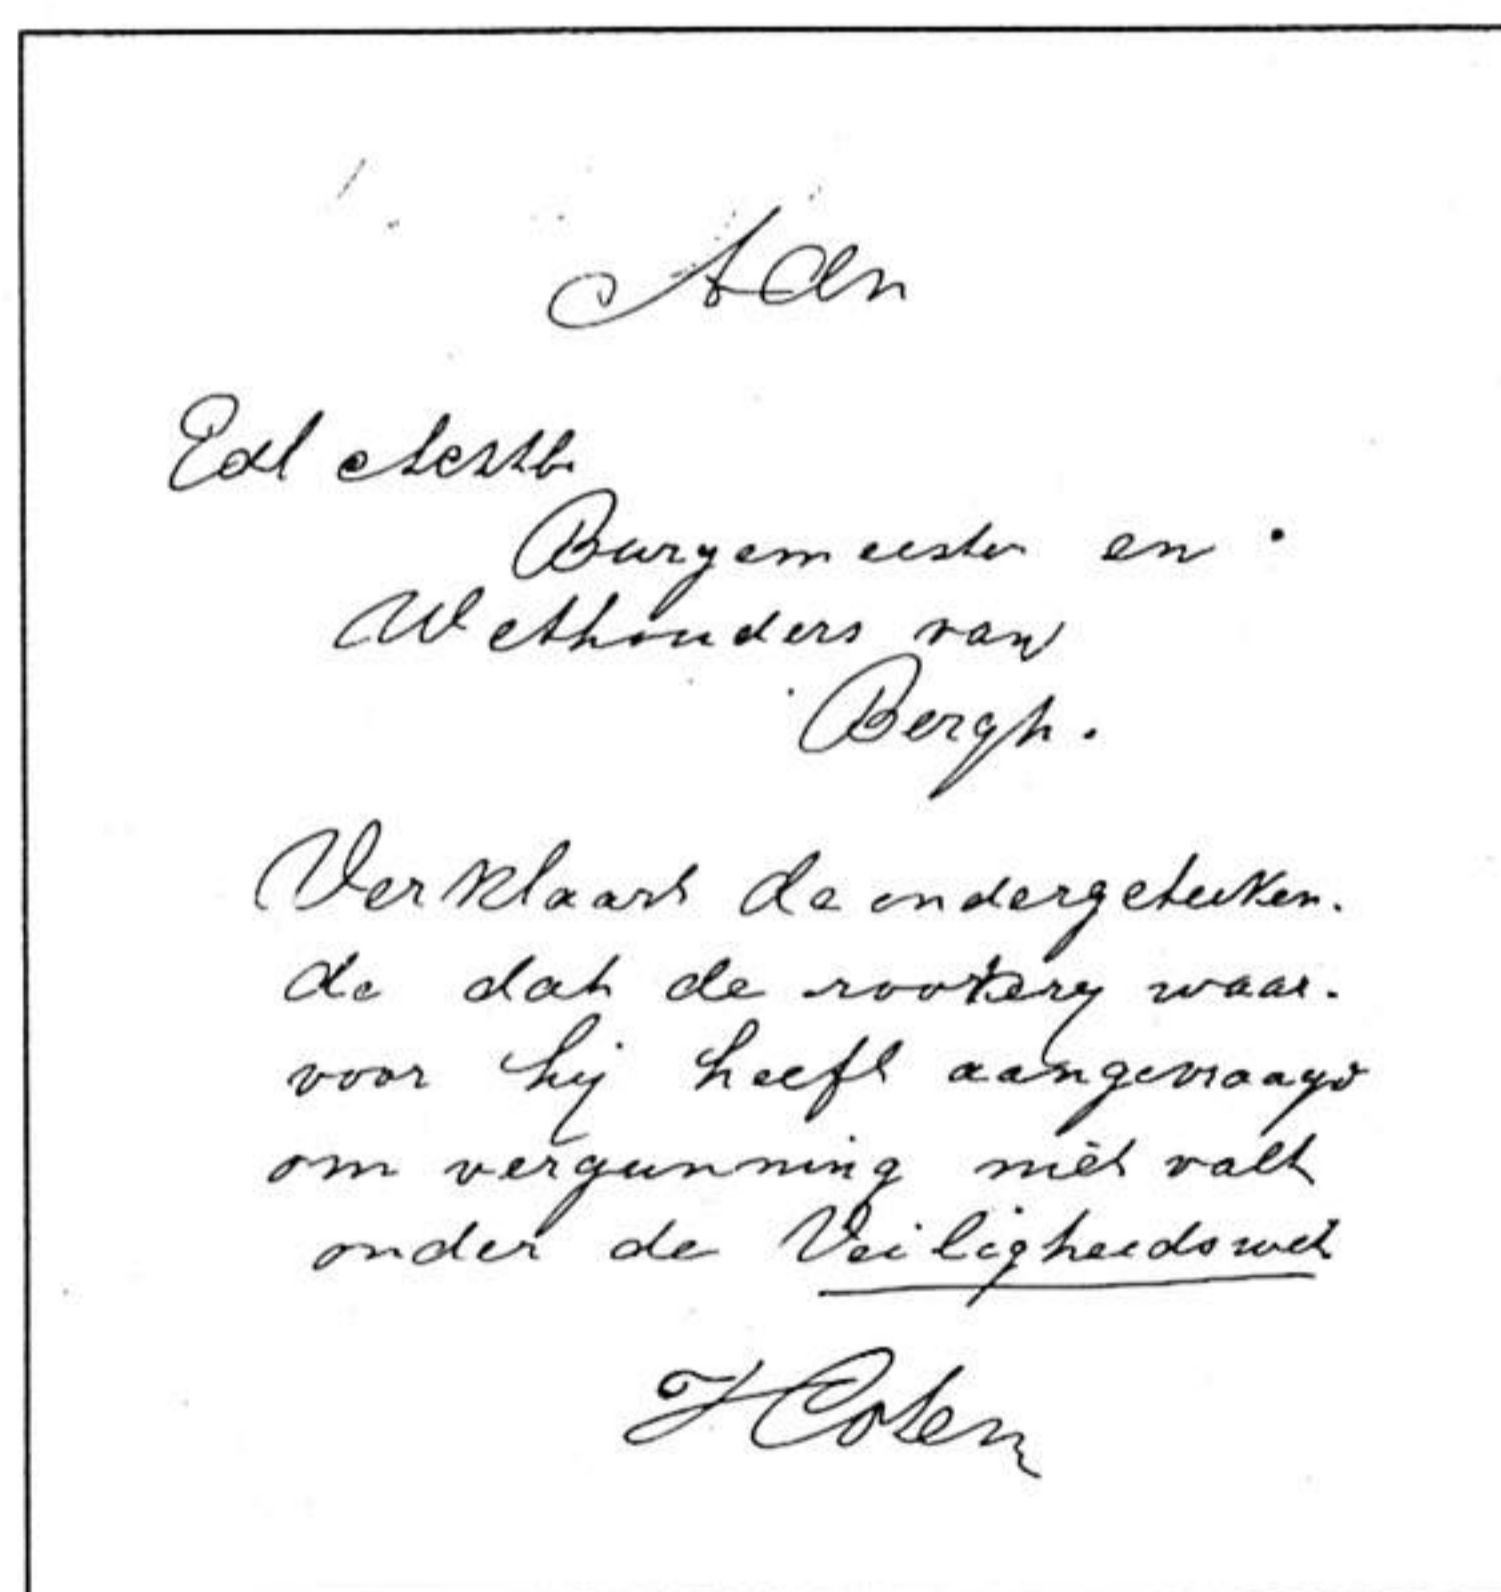 Aan
Edl Achtb.
Burgemeester en
Wethouders van
Bergh.
Verklaart de ondergeteeken.
de dat de rookery waar.
voor hij heeft aangevraagd
om vergunning niet valt
onder de Veiligheidswet
Cohen